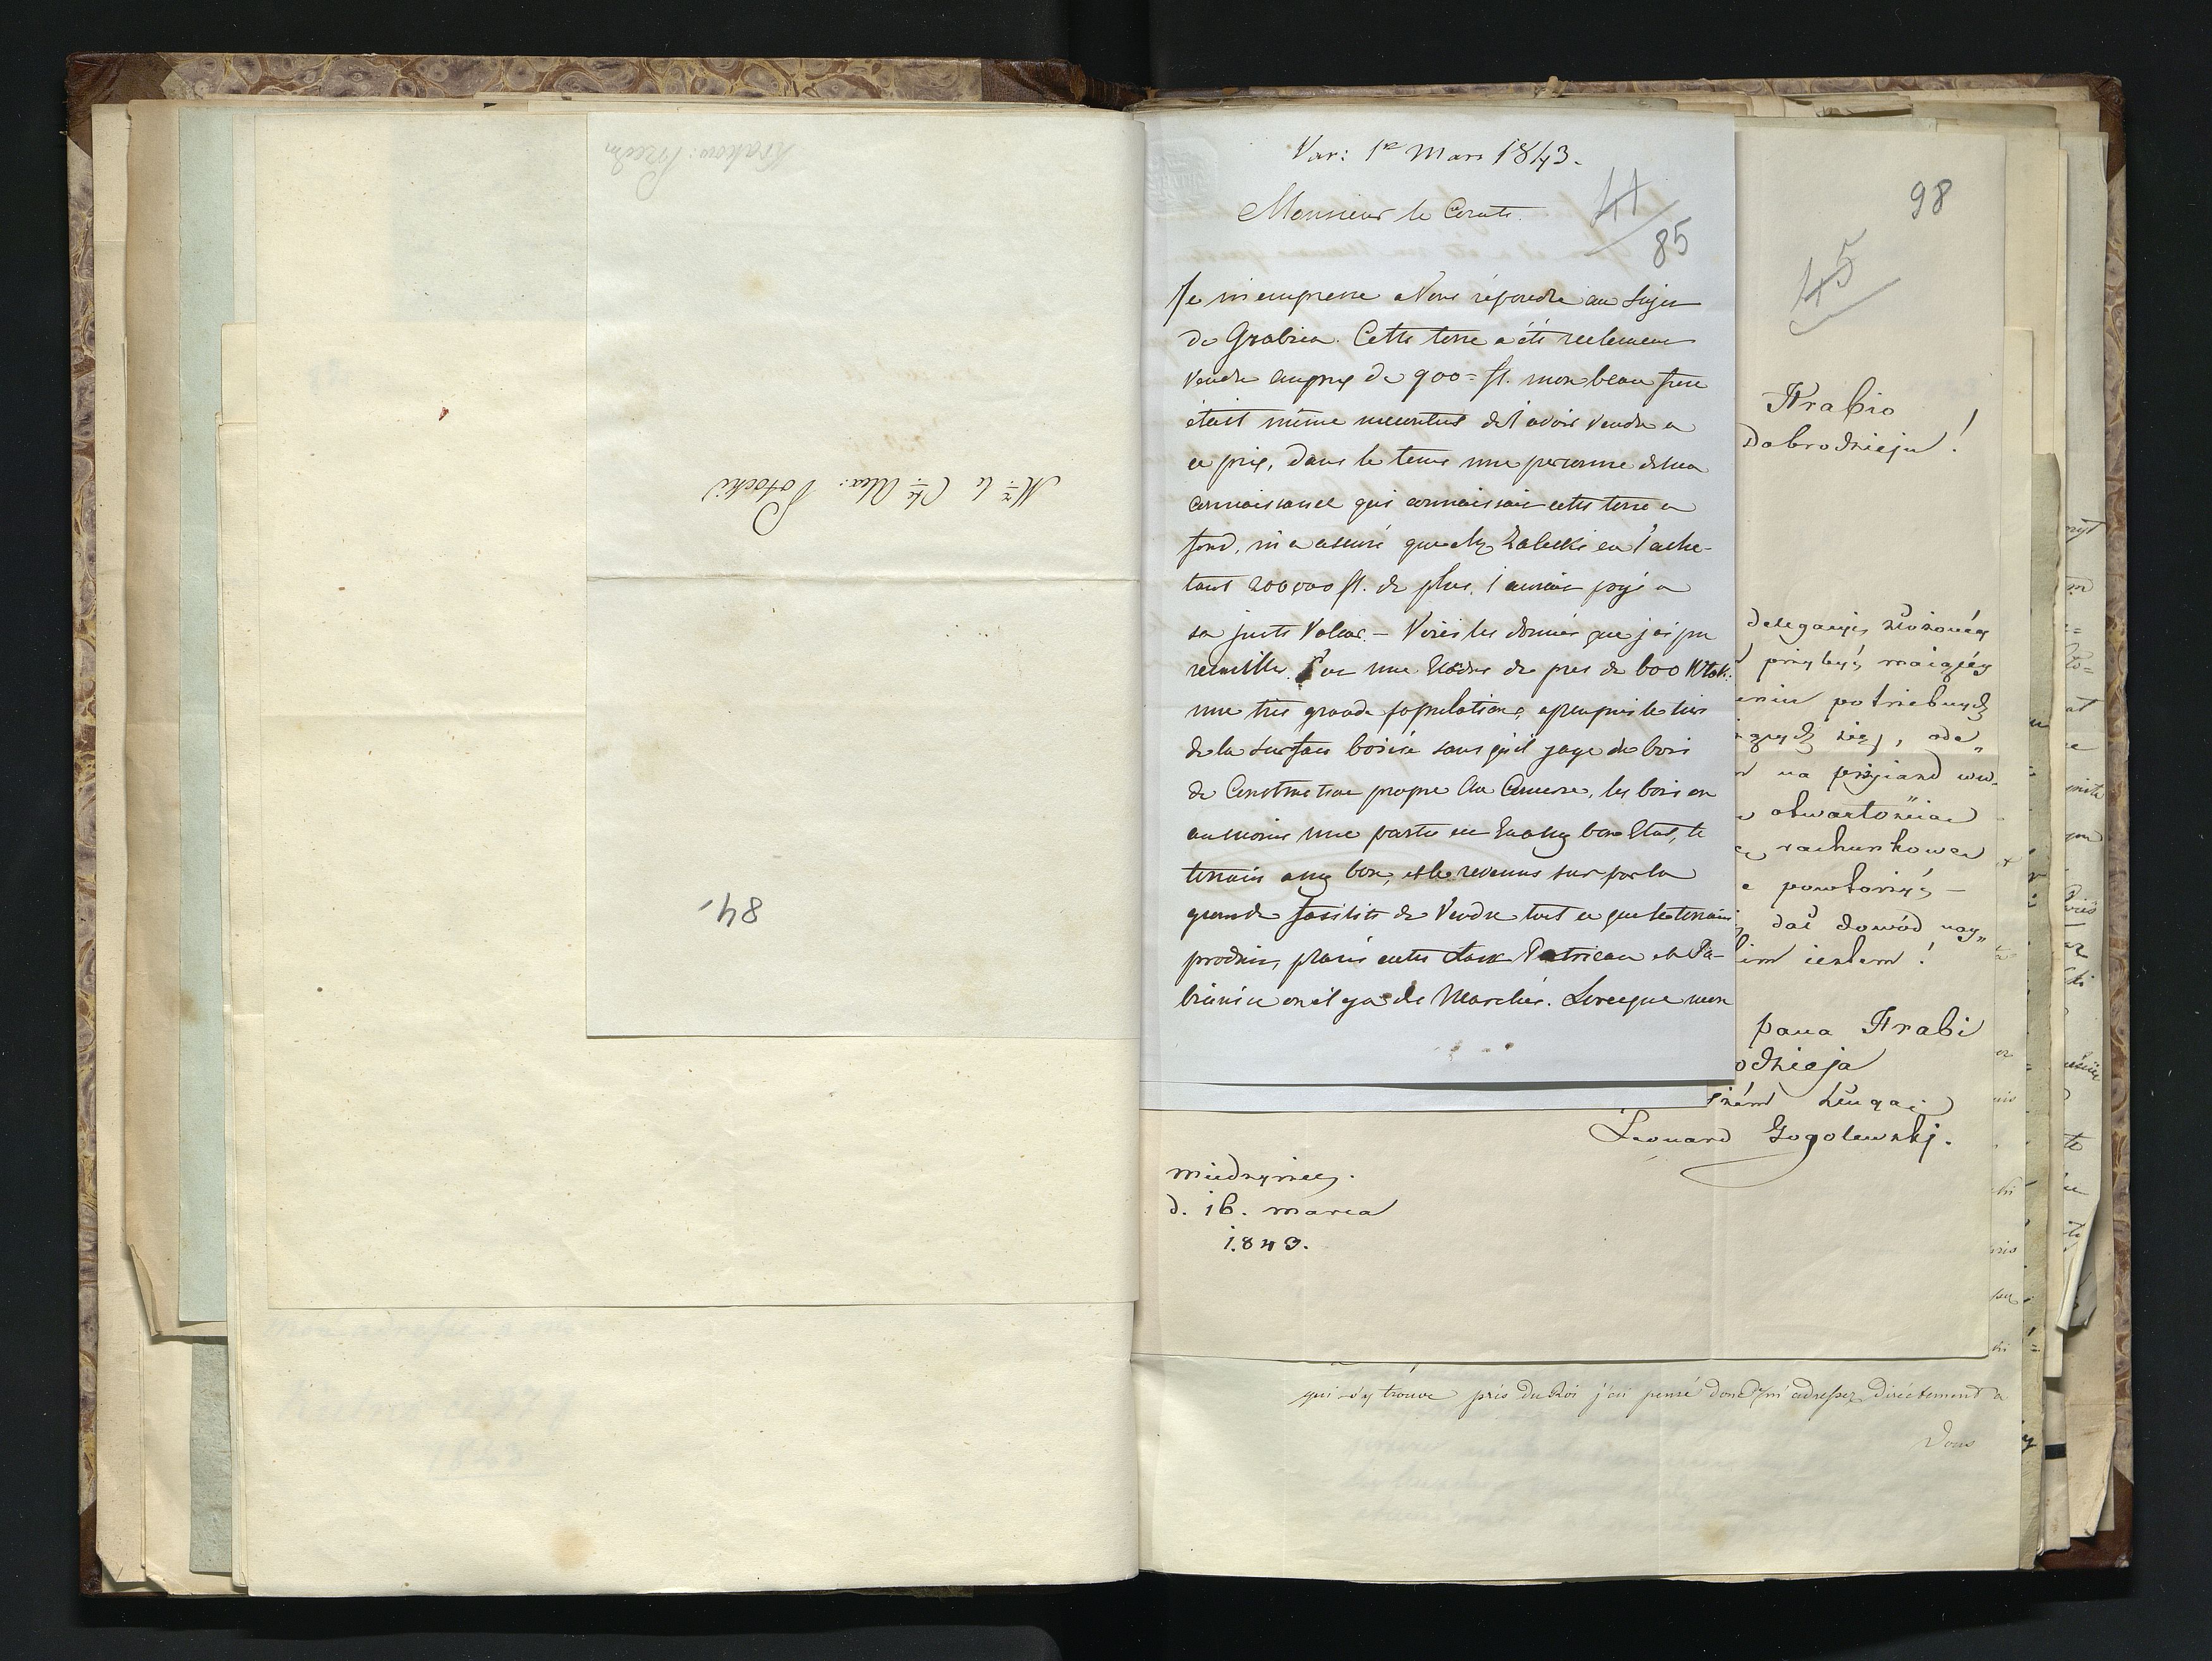 Krakow: Przedm
Mr. le Cte. Alex: Potocki
84
Var: 1r Mars 1843.
Monsieur le Comte.
41
85
Je m'empresse a Vous répondre au Sujet
de Grabica. Cette terre a été reelement
vendu au prix de 900= fl. mon beau frere
était même mecontent de l'avoir vendu a
ce prix, dans le tems une personne de ma
connaissance qui connaissait cette terre a
fond, m'a assuré que Mr Zaleski en l'ache-
tant 200,000 fl. de plus, l'aurait payé a
sa juste Valeur. — Voici les données que j'ai pu
recueillir. C'est une Etendue de pres de 600 Wlok:
une très grande population, a peu près le tiers
de la surface boisée sans qu'il y aye du bois
de Construction propre au Comerce, les bois en
au moins une partie en assez bon Etat, le
terrain assez bon, et le revenus sur par la
grande facilité de Vendre tout ce que le terrain
produit, placé entre Petricau et Pa-
bianice où il y a des Marchés. Lorsque mon
98
45
Hrabio
Dobrodzieju!
delegacyi złożonéy
przybyć maiącéy
potrzebnych
się, ode„
na przyiazd
otwartością
rachunkowa
powtorzyć —
dać dowód nay„
iestem!
pana Hrabi
odzieja
sługa
Leonard Gogolewski.
Miedzyrzec.
d. 16. marca
1843.
qui s'y trouve près du Roi j'ai pensé donc m'adresser diréctement a
Vous